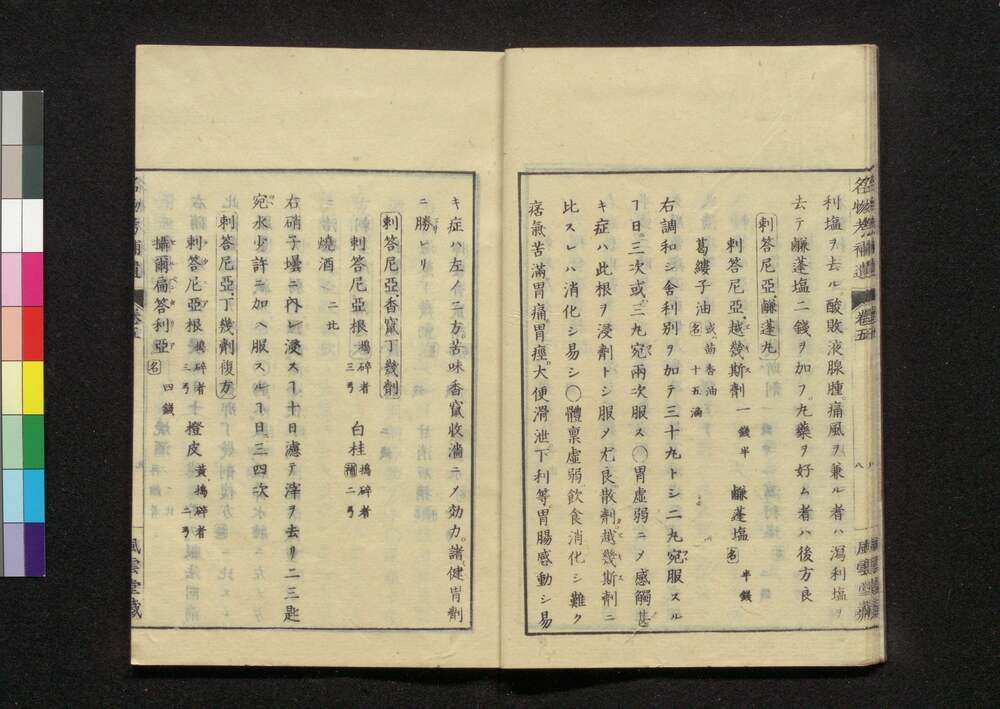 名物考補遺 卷五
八
風雲堂藏
利塩ヲ去ル酸敗液腺腫痛風ヲ兼ル者ハ瀉利塩ヲ
去テ鹻蓬塩二錢ヲ加フ丸藥ヲ好ム者ハ後方良
刺答尼亞鹻蓬丸
刺答尼亞越幾斯劑 一錢半 鹻蓬塩 名 半錢
葛縷子油 或茴香油 名 十五滴
右調和シ舍利別ヲ加テ三十九トシ二九宛服スル
ヿ日三次或三九宛兩次服ス〇胃虛弱ニノ感觸甚
キ症ハ此根ヲ浸劑トシ服ヲ尤良散劑越幾斯劑ニ
比スレハ消化シ易シ〇體稟虛弱飮食消化シ難ク
痞氣苦滿胃痛胃痙大便滑泄下利等胃腸感動シ易
キ症ハ左ノ二方苦味香竄收濇ニノ効力諸健胃劑
ニ勝レリ
刺答尼亞香竄丁幾劑
刺答尼亞根 搗碎者 三弓 白桂 搗碎者 二弓
燒酒 二比
右硝子壜ニ內レ浸スヿ十日濾テ滓ヲ去リ二三匙
宛水少許ニ加ヘ服スルヿ日三四次
刺答尼亞丁幾劑復方
刺答尼亞根 搗碎者 三弓 橙皮 黃搗碎者 二弓
攝爾扁答利亞 名 四錢
風雲堂藏